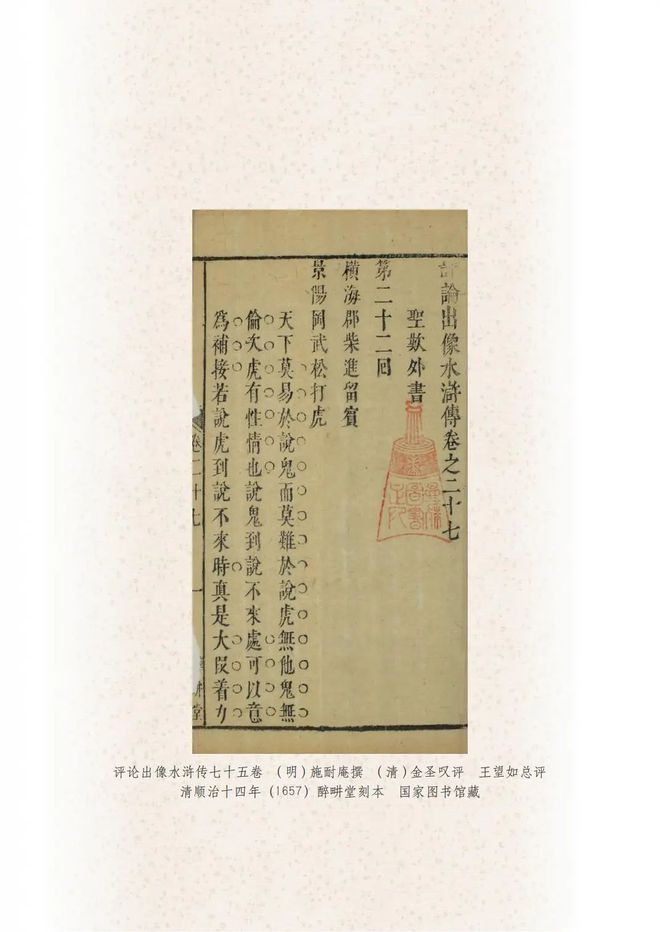 評論出像水滸傳卷之二十七
聖歎外書
第二十二回
橫海郡柴進留賓
景陽岡武松打虎
天下莫易於說鬼而莫難於說虎無他鬼無
倫次虎有性情也說鬼到說不來處可以意
爲補接若說虎到說不來時真是大段着力
卷二十七 一 堂
评论出像水浒传七十五卷 （明）施耐庵撰 （清）金圣叹评 王望如总评
清顺治十四年（1657）醉畊堂刻本 国家图书馆藏